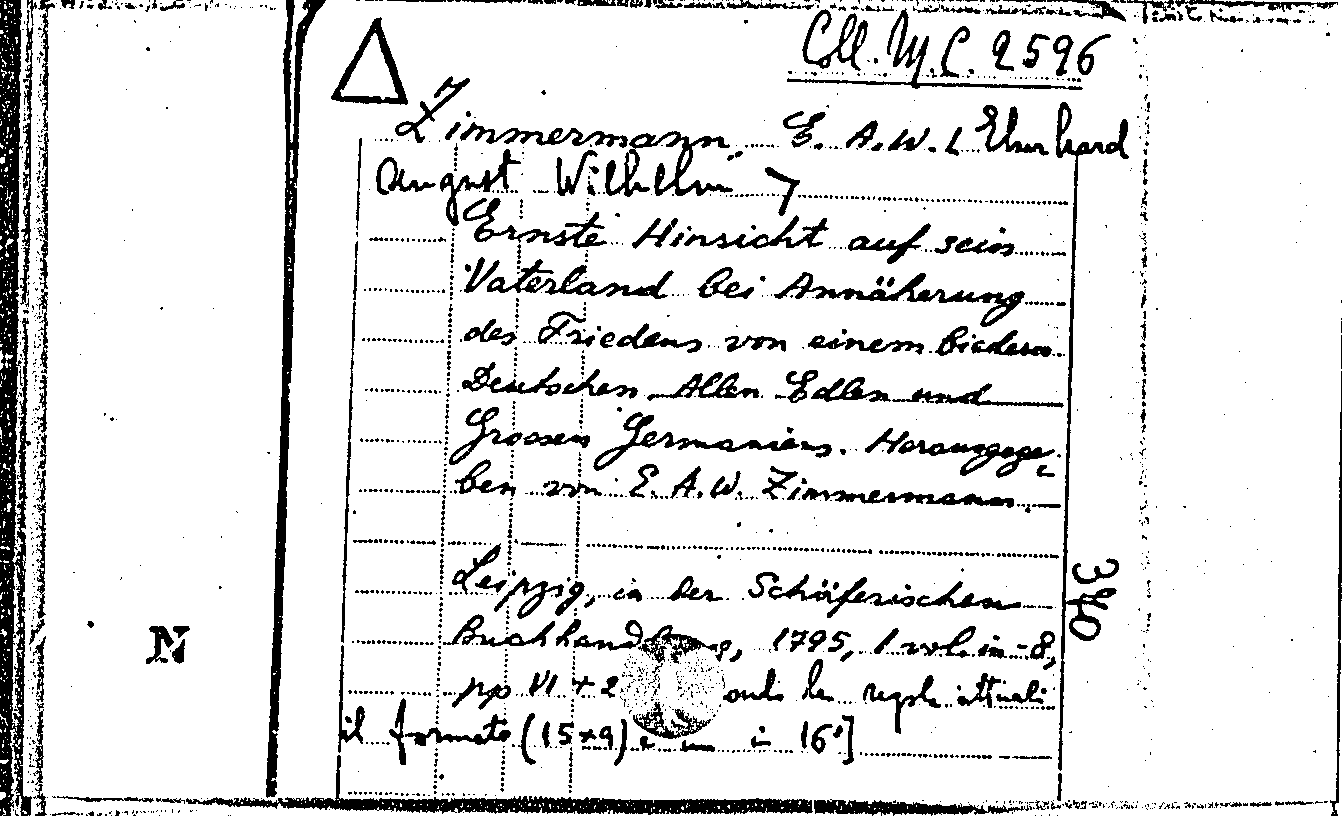 Coll. M.C. 2596
Zimmermann, E. A. W. [Eberhard
August Wilhelm]
Ernste Hinsicht auf sein
Vaterland bei Annäherung
des Friedens von einem biedern
Deutschen. Allen Edlen und
Grossen Germaniens. Herausgege-
ben von E. A. W. Zimmermann.
Leipzig, in der Schäferischen
340
N
1795, 1 vol. in-8,
pp VI + 2 le regole attuali
il formato (15x9) è un in 16°]